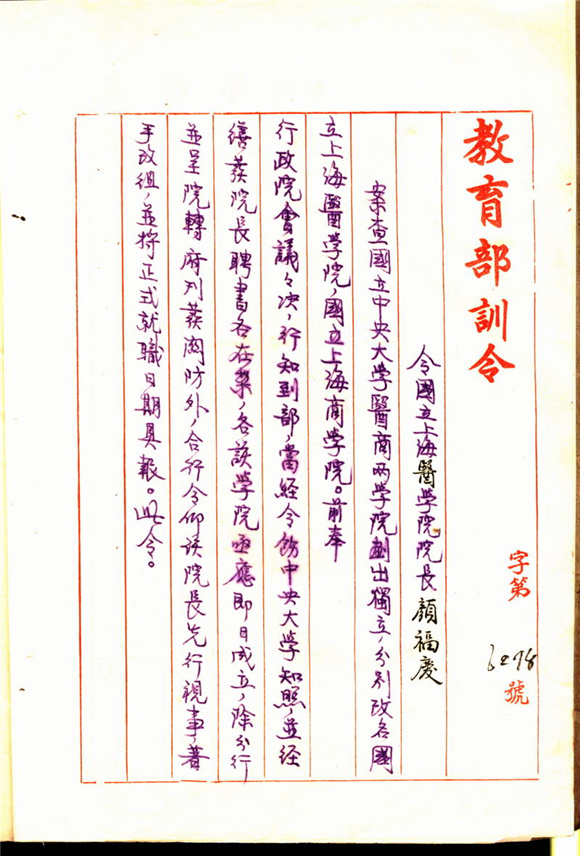 教育部訓令
字第 6298 號
令國立上海醫學院院長顏福慶
案查國立中央大學醫商兩學院劃出獨立，分別改名國
立上海醫學院，國立上海商學院。前奉
行政院會議々决，行知到部，當經令飭中央大學知照，並经
繕發院長聘書各在案，各該学院亟應即日成立，除分行
並呈院轉府刋發関防外，合行令仰该院長先行視事，着
手改组，並将正式就職日期具報。此令。